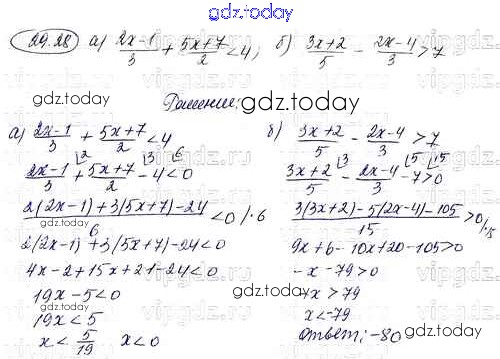 gdz.today
29.28 а) (2x-1)/3 + (5x+7)/2 < 4; б) (3x+2)/5 - (2x-4)/3 > 7
Решение: gdz.today
а) (2x-1)/3 + (5x+7)/2 < 4
(2x-1)/3 + (5x+7)/2 - 4 < 0
(2(2x-1)+3(5x+7)-24)/6 < 0 /·6
2(2x-1)+3(5x+7)-24<0
4x-2+15x+21-24<0
19x-5<0
19x<5
x < 5/19 x<0
б) (3x+2)/5 - (2x-4)/3 > 7
(3x+2)/5 - (2x-4)/3 - 7 > 0
(3(3x+2)-5(2x-4)-105)/15 > 0 /·15
9x+6-10x+20-105>0
-x-79>0
-x>79
x<-79
Ответ: -80
gdz.today